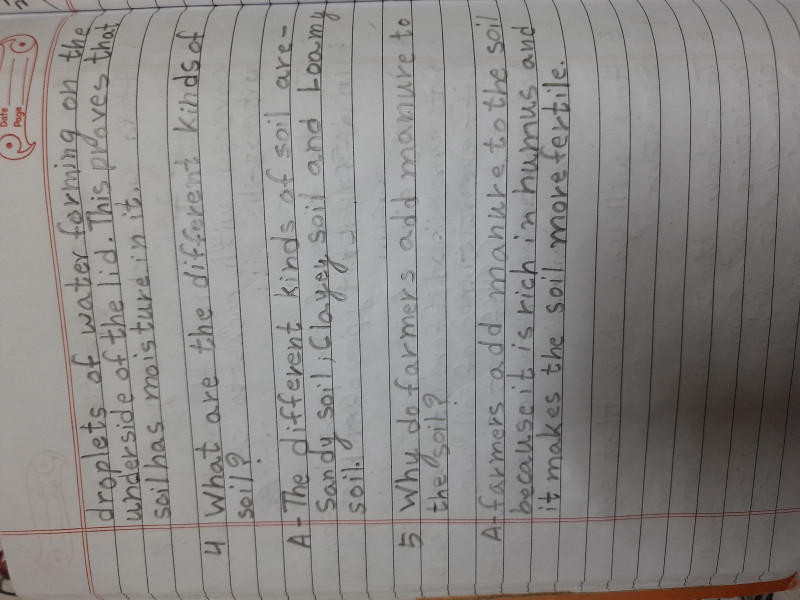 Date
Page
droplets of water forming on the
underside of the lid. This proves that
soil has moisture in it.
4 What are the different kinds of
soil?
A- The different kinds of soil are-
Sandy soil, Clayey soil and Loamy
soil.
5 Why do farmers add manure to
the soil?
A- farmers add manure to the soil
because it is rich in humus and
it makes the soil more fertile.